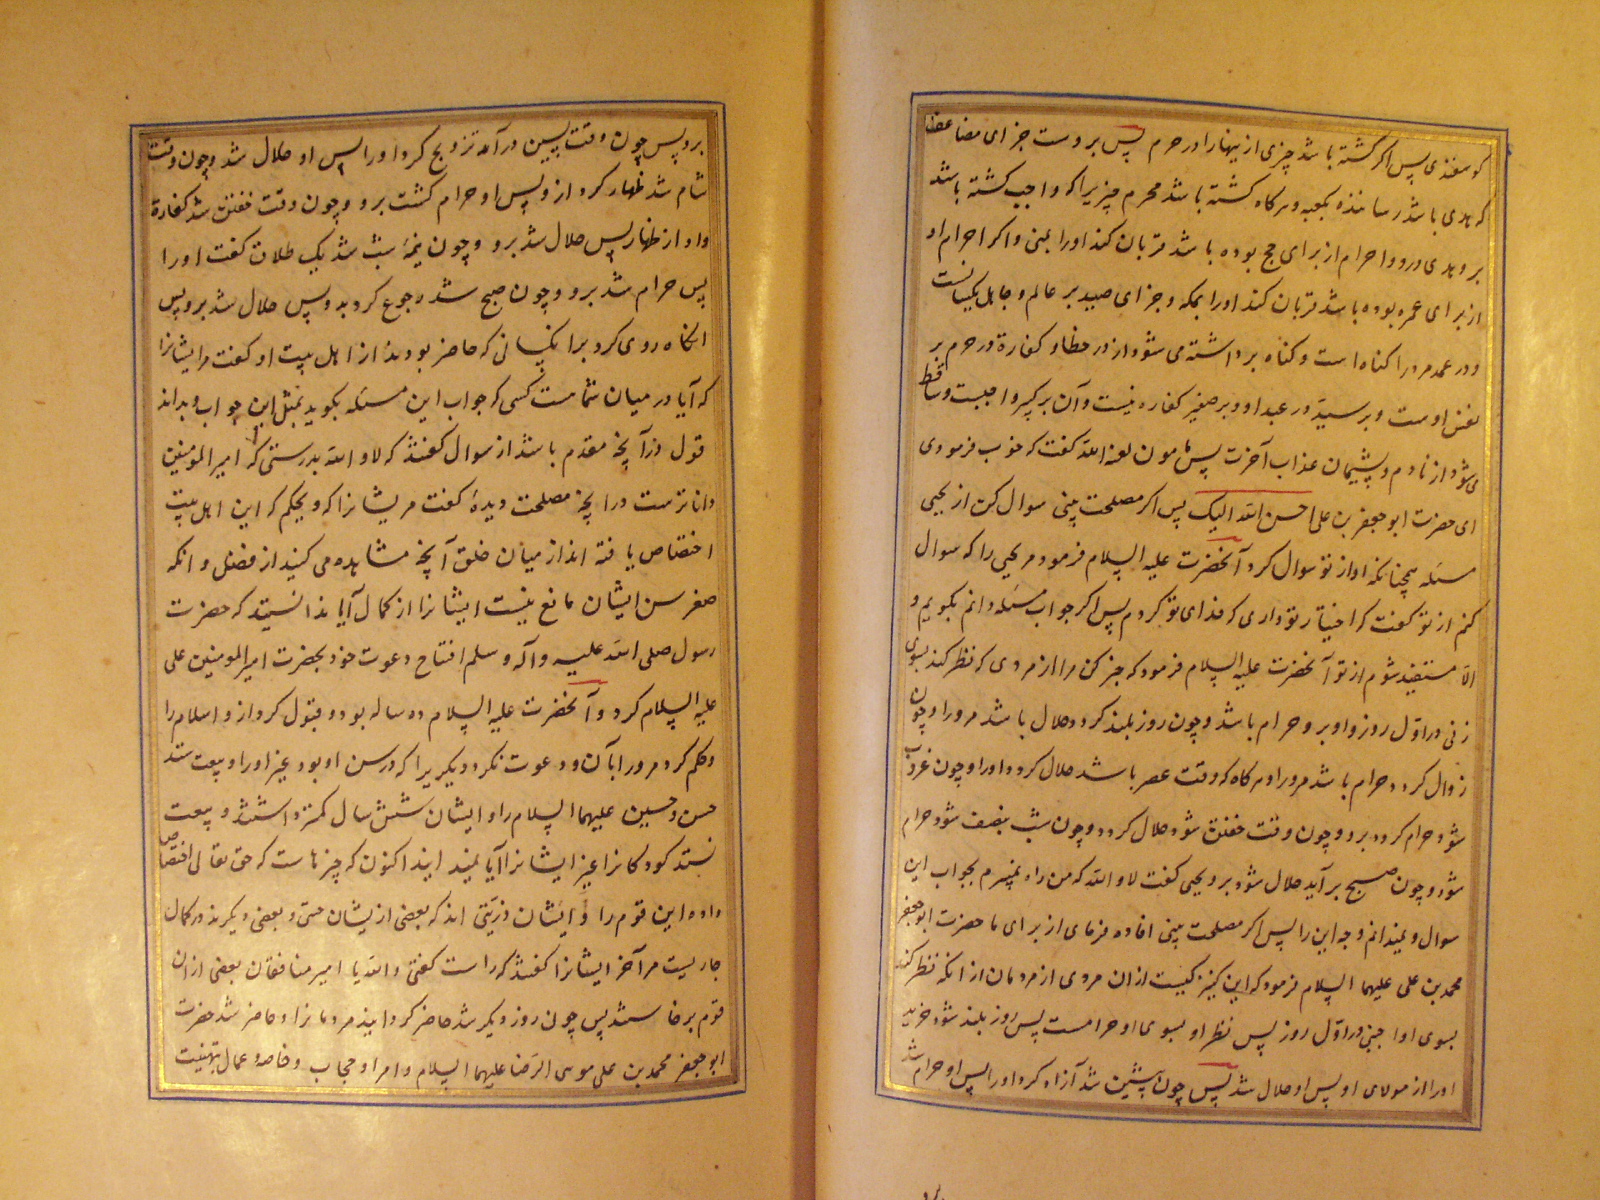 کوسفندی پس اکر کشته باشد چیزی از ینها را در حرم پس بروست جزای مضاعف
که هدی باشد رساننده بکعبه و هرکاه کشته باشد محرم چیزیرا که واجب کشته باشد
برو هدی درو و احرام از برای حج بوده باشد قربان کند اورا بمنی و اکر احرام او
از برای عمره بوده باشد قربان کند اورا بمکه و جزای صید بر عالم و جاهل یکسانست
و در عمد مرورا کناه است و کناه برداشته می شود ازو در خطا و کفارة در حر م بر
نفس اوست و بر سید در عبد او و بر صغیر کفاره نیست و آن بر کبیر واجبست و ساقط
می شود از نادم و پشیمان عذاب آخرت پس مامون لعنه الله کفت که خوب فرمودی
ای حضرت ابو جعفر بن علی احسن الله الیک پس اکر مصلحت بینی سوال کن از یحیی
مسئله همچنانکه او از تو سوال کرد آنحضرت علیه السلام فرمود مر یحیی را که سوال
کنم از تو کفت که اختیار تو داری که فدای تو کردم پس اکر جواب مسئله دانم بکویم و
الا مستفید شوم از تو آنحضرت علیه السلام فرمود که خبر کن مرا از مردی که نظر کند بسوی
زنی در اوّل روز و او برو حرام باشد و چون روز بلند کردد حلال باشد مرورا و چون
زوال کردد حرام باشد مرورا و هرکاه که وقت عصر باشد حلال کردد اورا و چون غروب
شود حرام کردد برو و چون وقت خفتن شود حلال کردد و چون شب بنصف شود حرام
شود و چون صبح برآید حلال شود برو یحیی کفت لا والله که من راه نمیبرم بجواب این
سوال و نمیدانم وجه این را پس اکر مصلحت بینی افاده فرمای از برای ما حضرت ابو جعفر
محمد بن علی علیهما السلام فرمود که این کنیز کیست از ان مردی از مردمان از انکه نظر کند
بسوی او اجنبی در اوّل روز پس نظر او بسوی او حرامست پس روز بلند شود خرید
اورا از مولای او پس او حلال شد پس چون پیشین شد آزاد کرد اورا پس او حرام شد
برو پس چون وقت پسین درآمد تزویج کرد اورا پس او حلال شد و چون وقت
شام شد ظهار کرد ازو پس او حرام کشت برو و چون وقت خفتن شد کفارة
داد از ظهار پس حلال شد برو و چون نیمهٔ شب شد یک طلاق کفت اورا
پس حرام شد برو و چون صبح شد رجوع کرد بدو پس حلال شد برو پس
انکاه روی کرد برانکسانی که حاضر بودند از اهل بیت او کفت مر ایشانرا
که آیا در میان شما هست کسی که جواب این مسئله بکوید بمثل این جواب و بداند
قول در آنچه مقدم باشد از سوال کفتند که لا والله بدرستی که امیر المومنین
داناترست در انچه مصلحت دیدهٔ کفت مریشانرا که ویحکم که این اهل بیت
اختصاص یافته اند از میان خلق آنچه مشاهده می کنید از فضل و انکه
صغر سن ایشان مانع نیست ایشانرا از کمال آیا ندانستید که حضرت
رسول صلی الله علیه و آله و سلم افتتاح دعوت خود بحضرت امیر المومنین علی
علیه السلام کرد و آنحضرت علیه السلام ده ساله بود و قبول کرد ازو اسلام را
و حکم کرد مرورا بآن و دعوت نکرد دیکریرا که در سن او بود غیر اورا و بیعت ستد
حسن و حسین علیهما السلام را و ایشان شش سال کمتر داشتند و بیعت
نستد کودکانرا غیر ایشانرا آیا نمیدانید اکنون که چیزهاست که حق تعالی اختصاص
داده این قوم را و ایشان ذریّتی اند که بعضی ازیشان حتی و بعضی دیکرند در کمال
جاریست مر آخر ایشانرا کفتند که راست کفتی والله یا امیر منافقان بعضی ازان
قوم برخاستند پس چون روز دیکر شد حاضر کردانید مردمانرا و حاضر شد حضرت
ابو جعفر محمد بن علی موسی الرّضا علیهما السلام و امرا و حجاب و خاصه و عمال بتهنیت